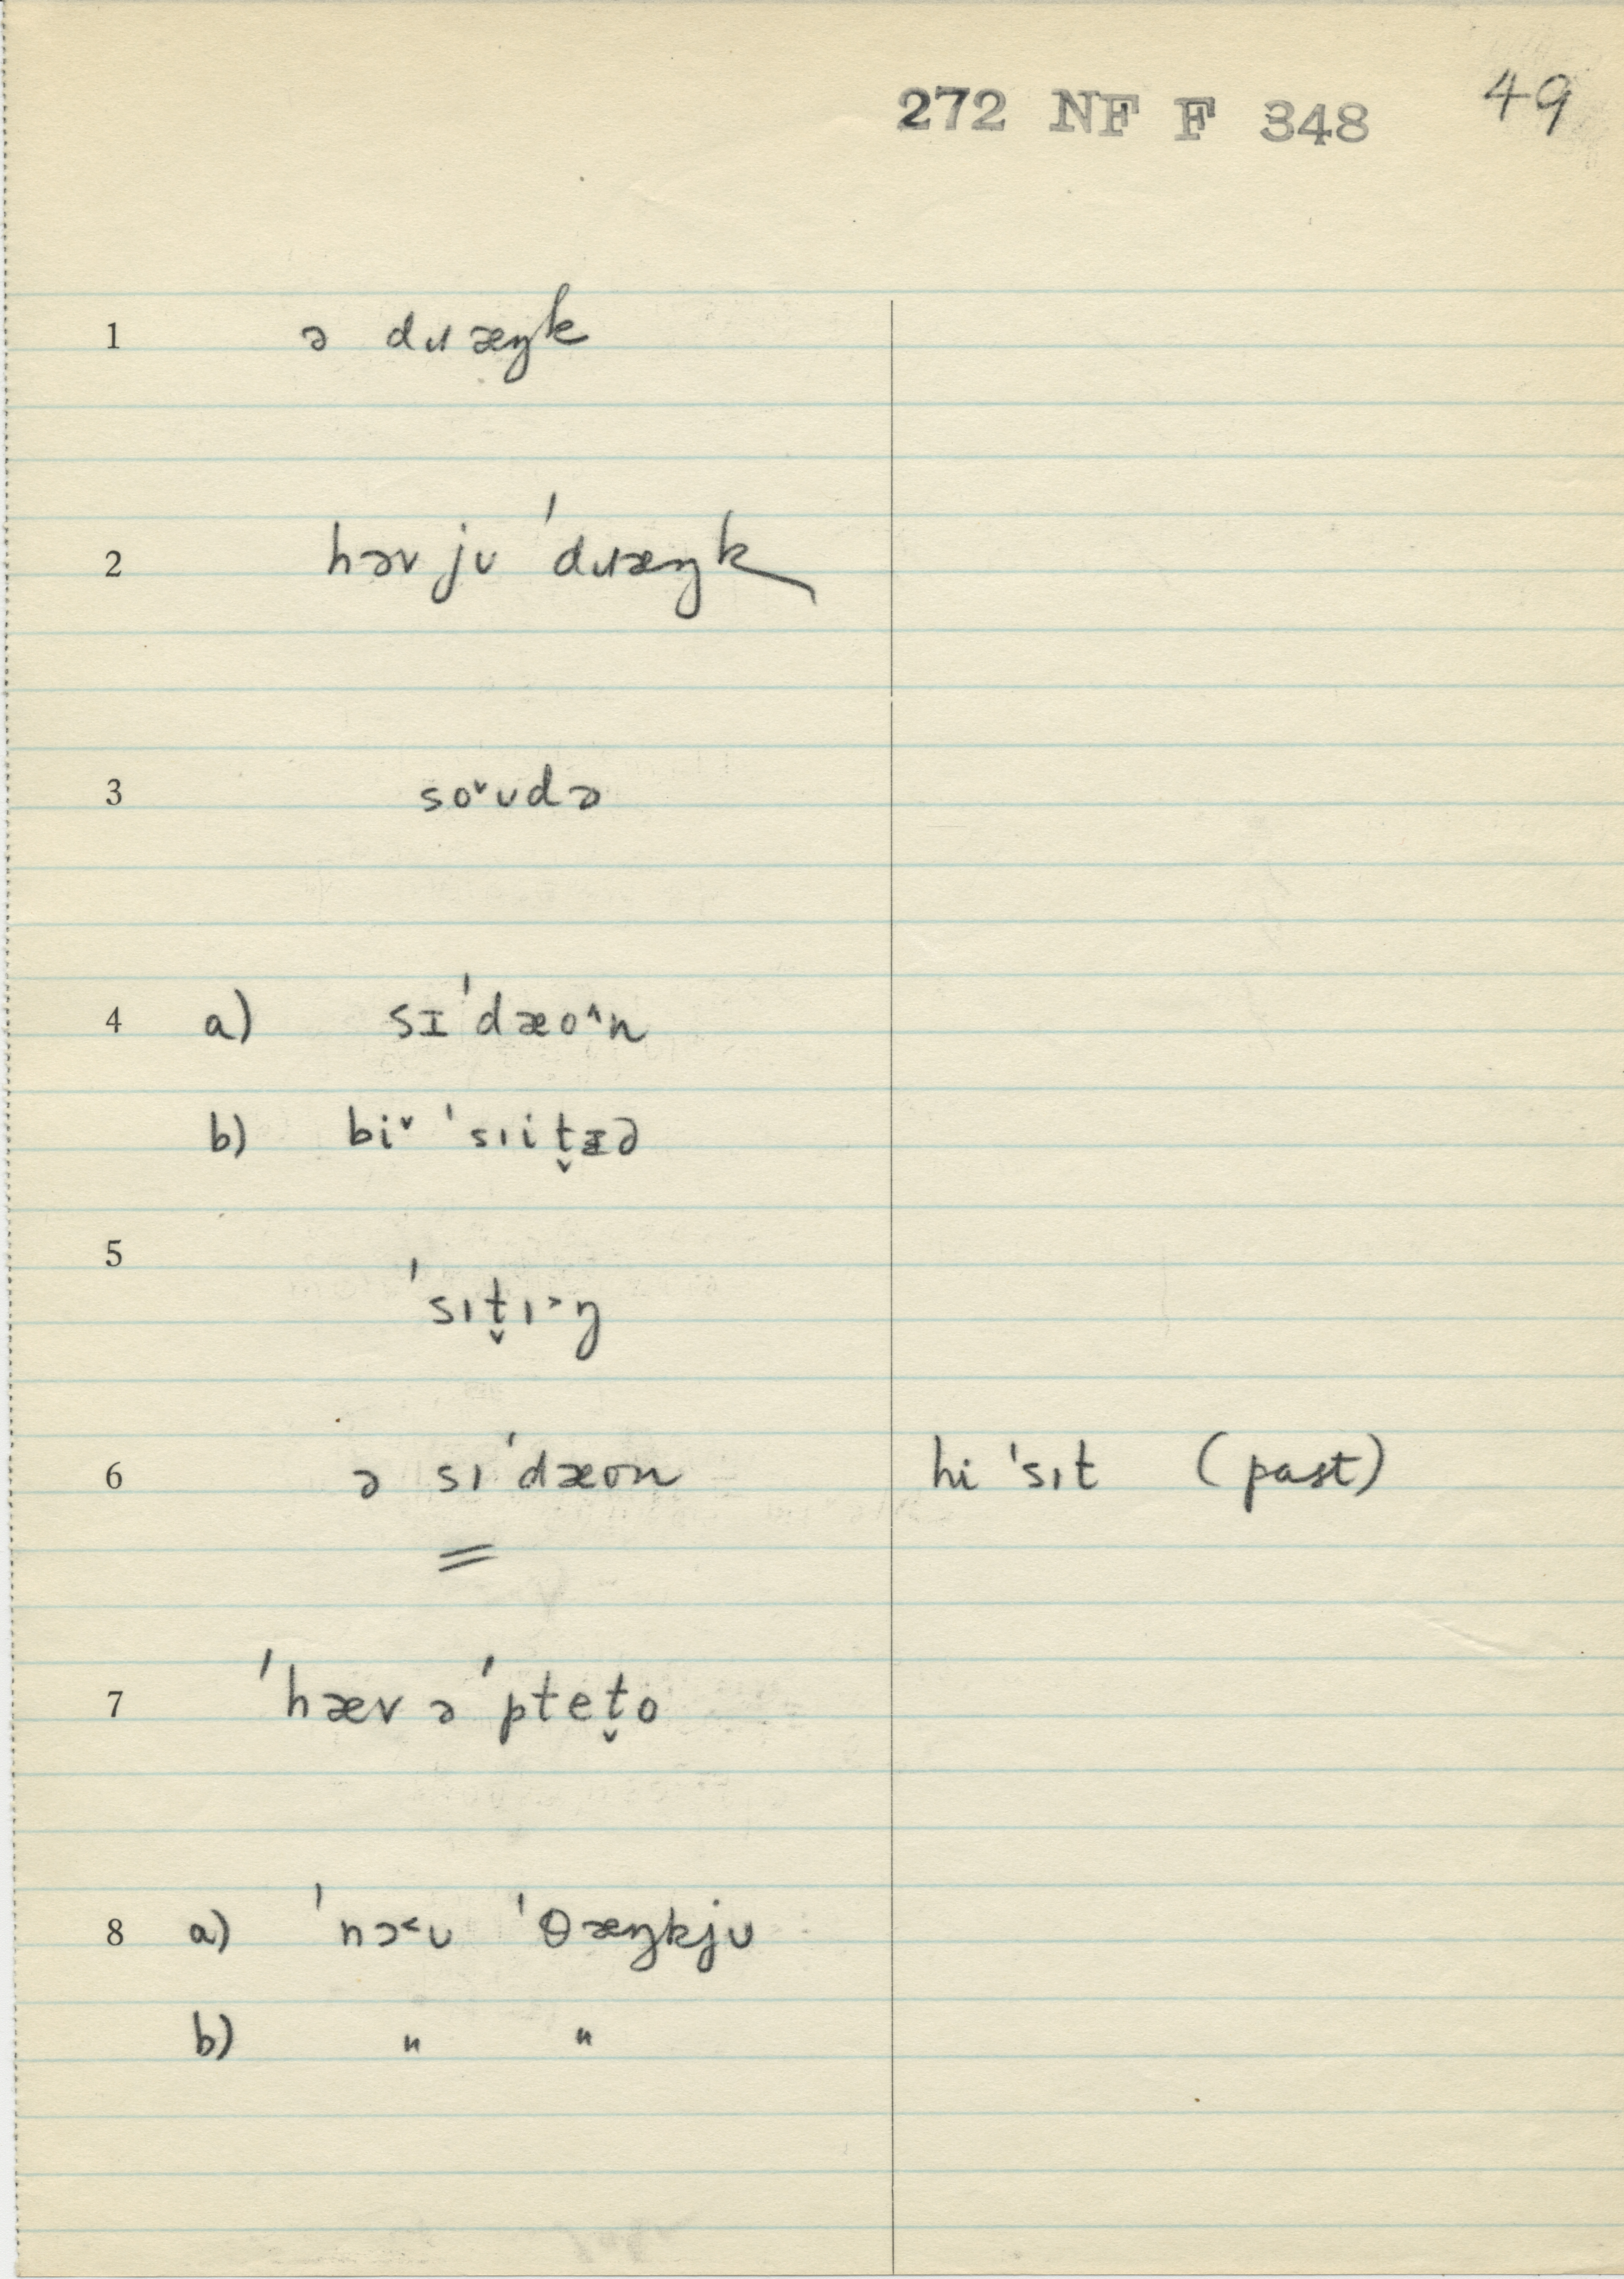 272 NF F 348 49
1 ə dɹæŋk
2 həv jʊ ˈdɹæŋk
3 so˅ʊdə
4 a) sɪˈdæo˄n
b) bi˅ ˈsɪit̬ɪd
5 ˈsɪt̬ɪ˃ŋ
6 ə sɪˈdæon hi ˈsɪt (past)
=
7 ˈhæv əˈptet̬o
8 a) ˈnə˂ʊ ˈθæŋkjʊ
b) " "